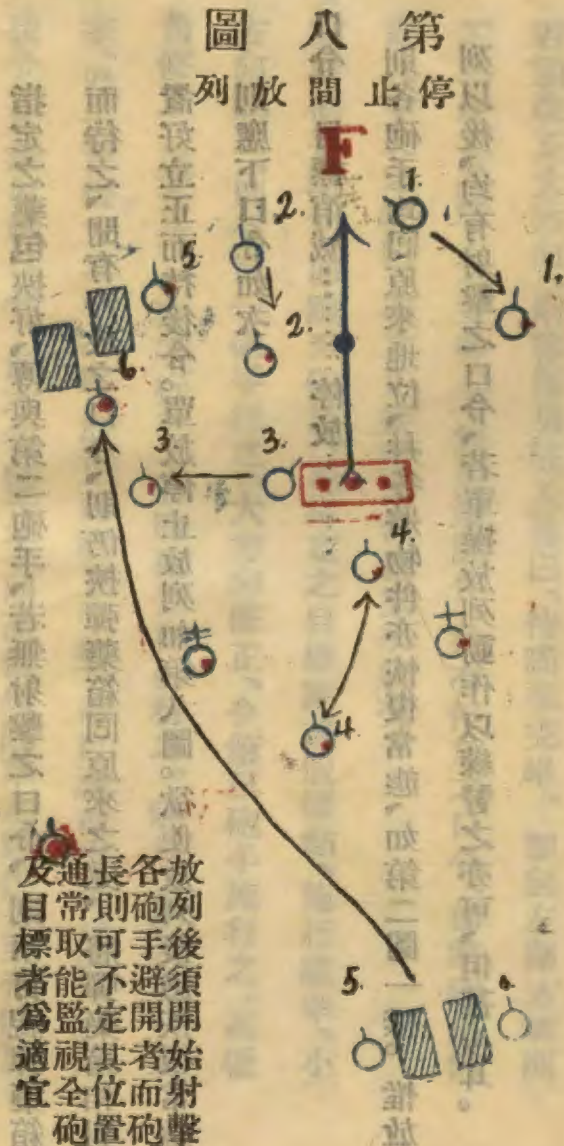 第八圖
停止間放列
F
1.
1.
2.
2.
5.
6.
3.
3.
4.
4.
5.
6.
放列後須開始射擊
各砲手避開者而砲
長則可不定其位置
通常取能監視全砲
及目標者爲適宜